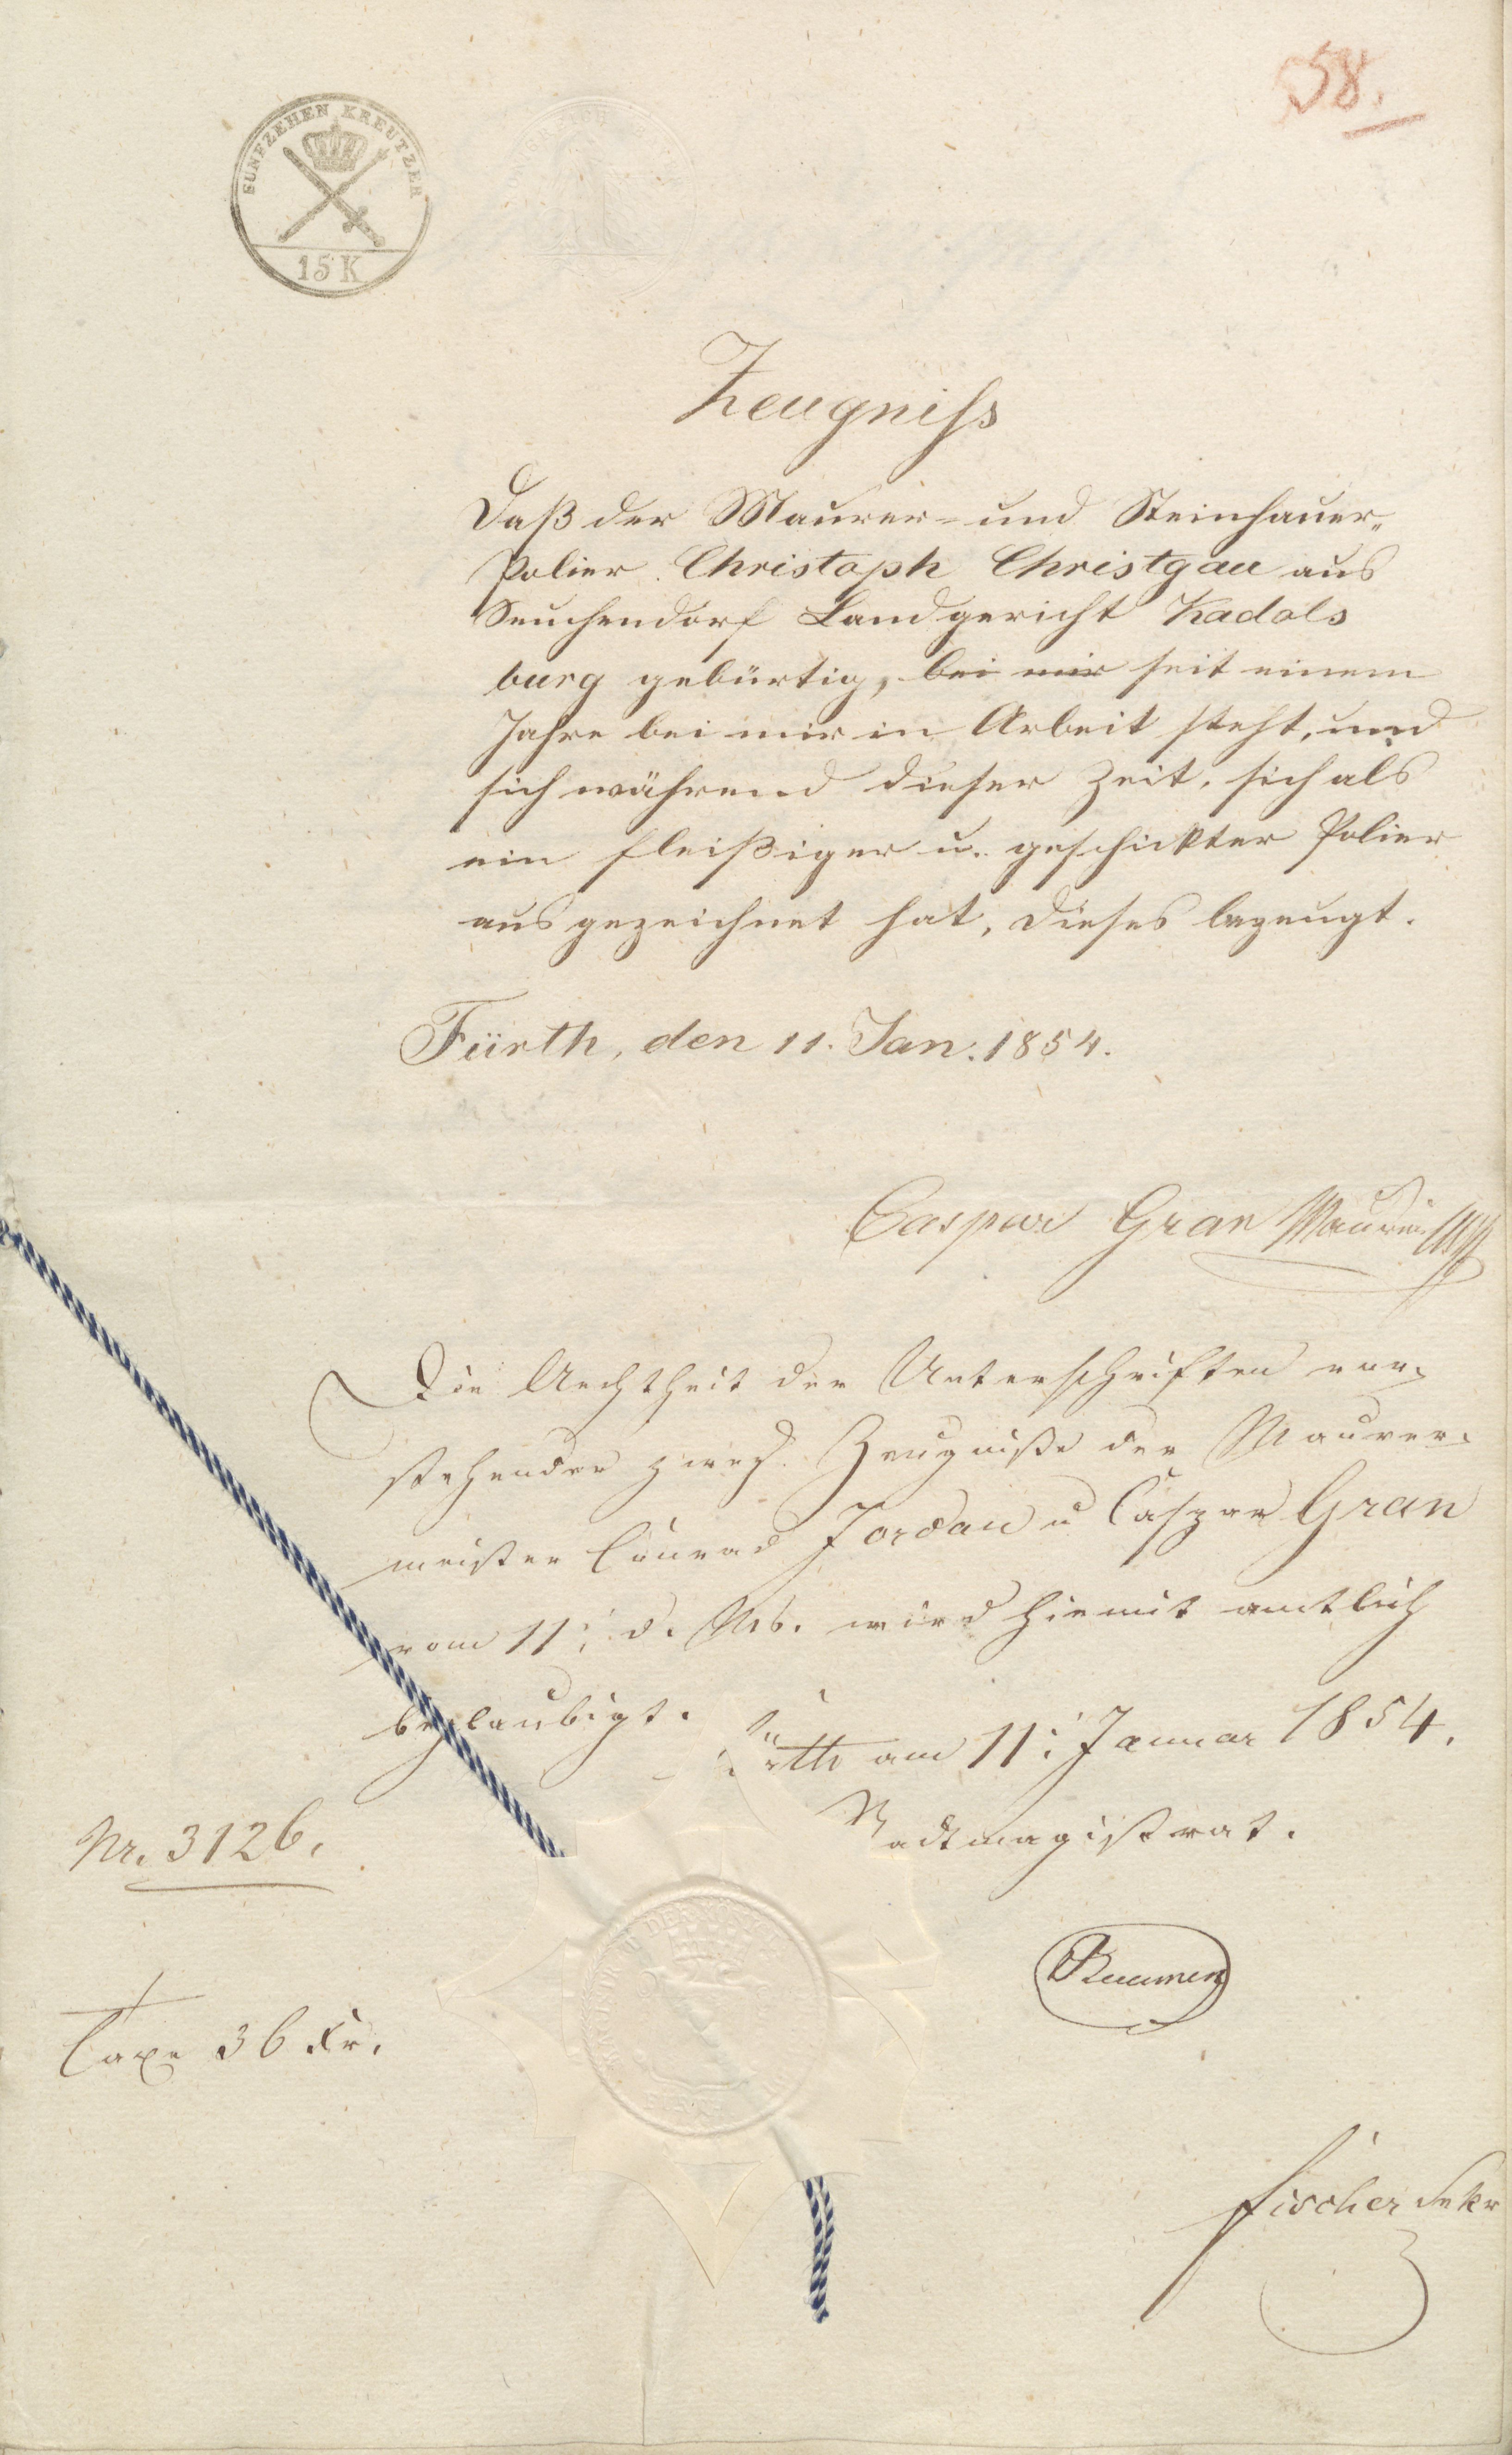 58.
FUNFZEHEN KREUTZER
15 K
Zeugniss
Daß der Maurer- und Steinhauer-
Polier Christoph Christgau aus
Seuchendorf Landgericht Kadols
burg gebürtig, bei mir seit einem
Jahre bei mir in Arbeit steht, und
sich während dieser Zeit, sich als
ein fleißiger u. geschickter Polier
ausgezeichnet hat, dieses bezeugt.
Fürth, den 11. Jan. 1854.
Caspar Gran
Die Aechtheit der Unterschriften vor-
stehender zwei Zeugniße der Maurer-
meister Conrad Jordan u Caspar Gran
vom 11: d. Mts. wird hiemit amtlich
beglaubigt.
Fürth am 11: Januar 1854.
Stadtmagistrat.
Nr. 3126.
Taxe 36 Kr.
Fischer Sekr